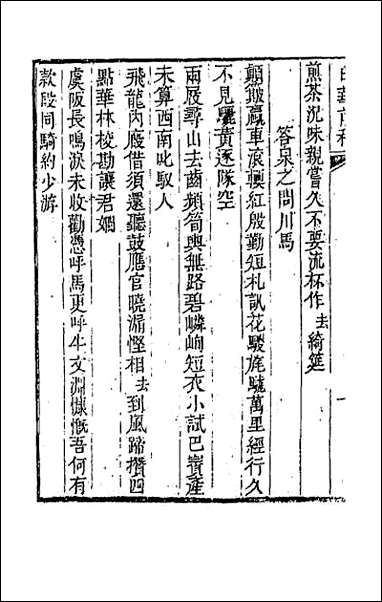 煎茶況味親嘗久不要流杯作去綺筵
答泉之問川馬
顛𨇾羸車滾輭紅殷勤短札訊花驄旄驉萬里經行久
不見驪黃逐隊空
兩屐尋山去齒頻筍輿無路碧嶙峋短衣小試巴賨產
未算西南叱馭人
飛龍內廄借須還聽鼓應官曉漏慳相去到風蹄攢四
點華林校勘讓君嫺
虞阪長鳴淚未收勸憑呼馬更呼牛文淵慷慨吾何有
款段同騎約少游